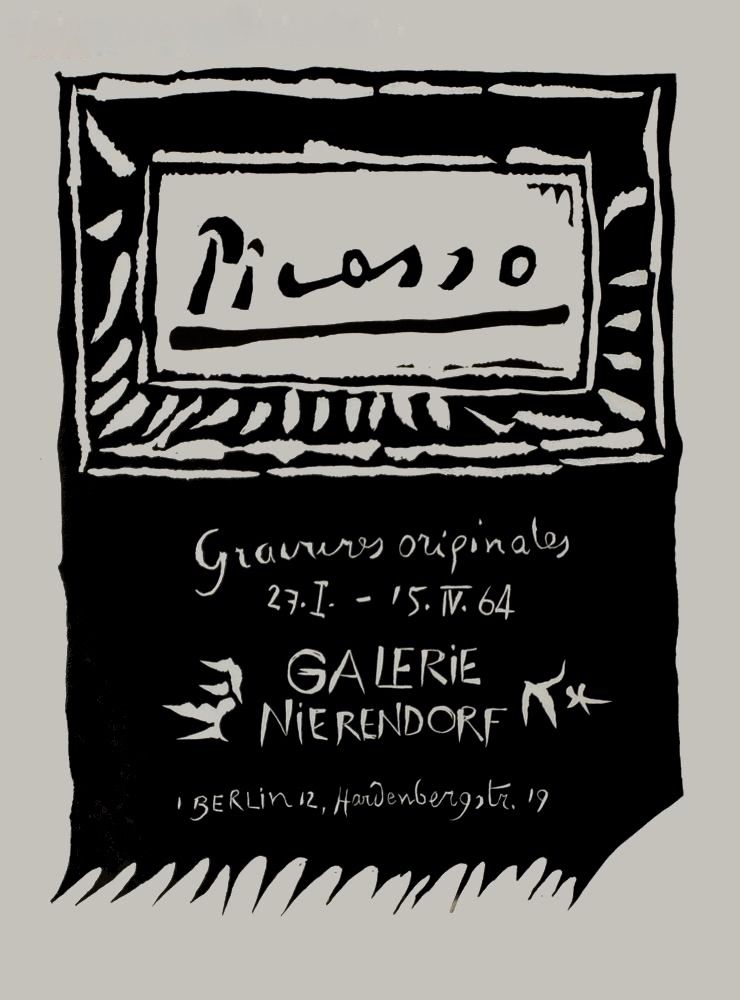 Picasso
Gravures originales
27.I. - 15.IV.64
GALERIE
NIERENDORF
1 BERLIN 12, Hardenbergstr. 19